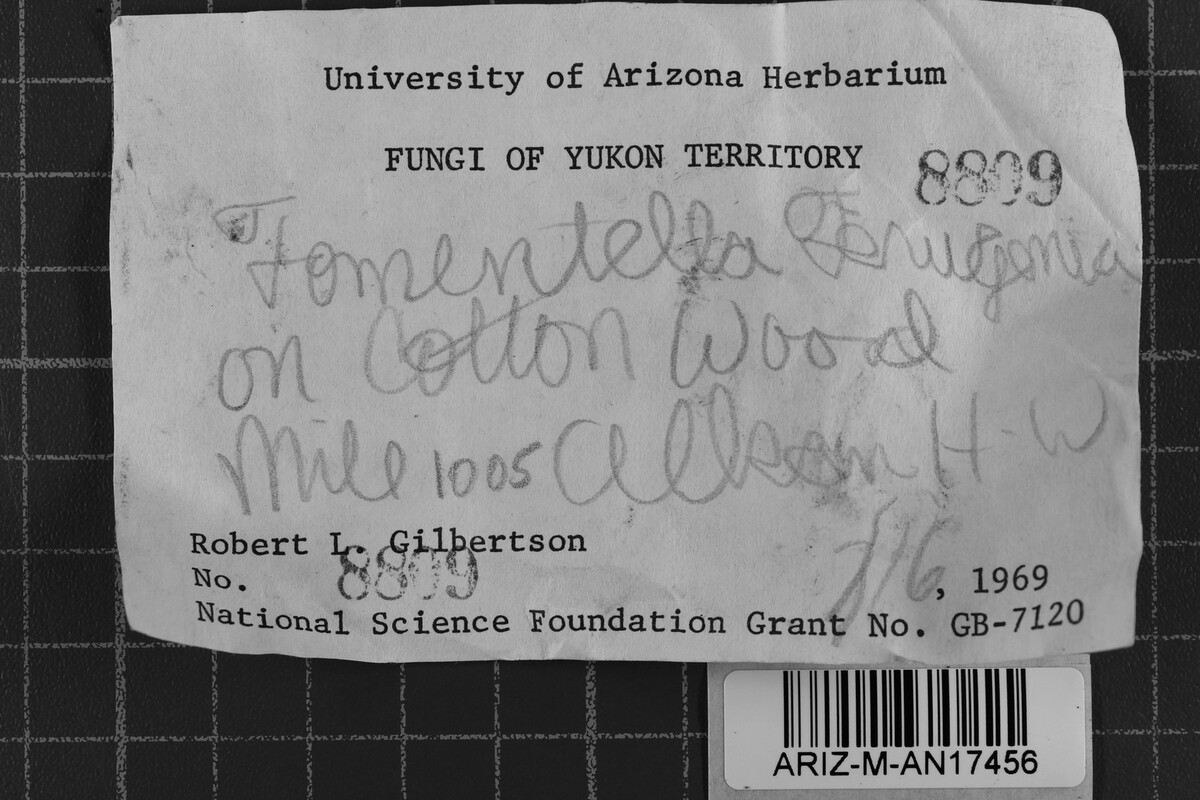 University of Arizona Herbarium
FUNGI OF YUKON TERRITORY
8809
Tomentella
on Cotton Wood
Mile 1005 Alkan H-W
Robert L. Gilbertson
No. 8809
, 1969
National Science Foundation Grant No. GB-7120
ARIZ-M-AN17456